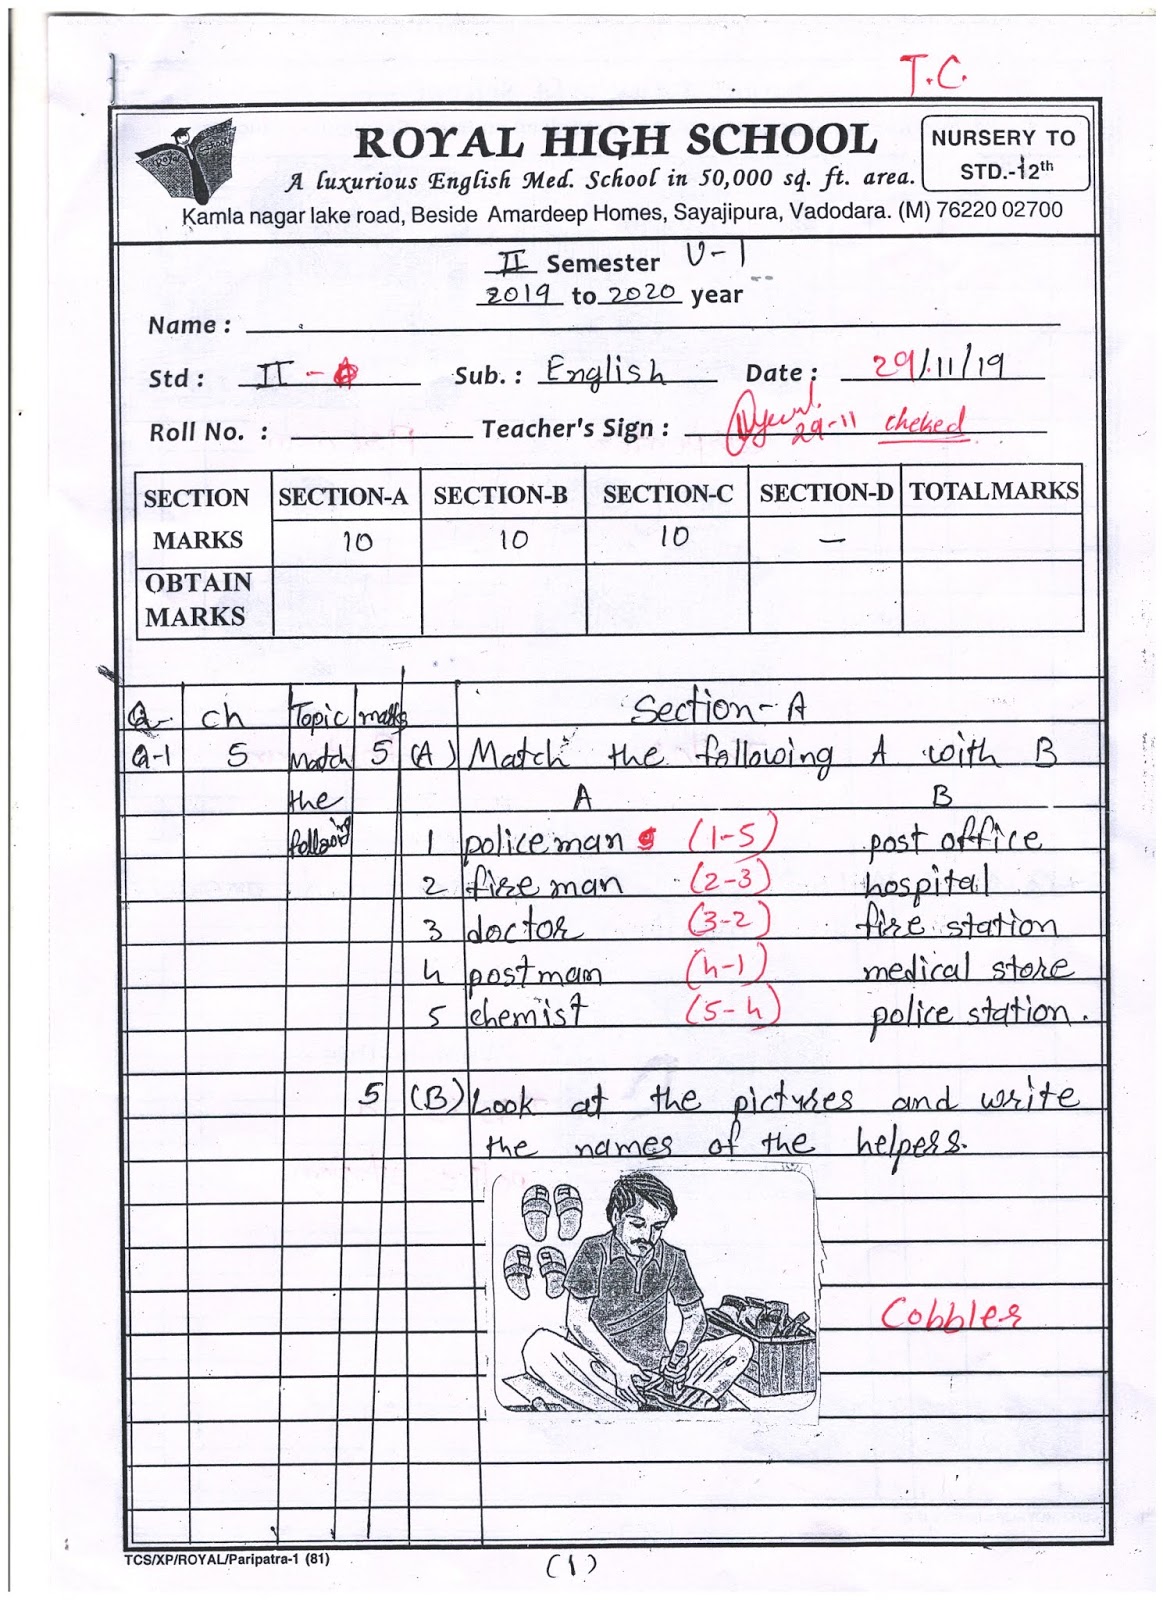 T.C.
ROYAL HIGH SCHOOL
NURSERY TO
STD.-12th
A luxurious English Med. School in 50,000 sq. ft. area.
Kamla nagar lake road, Beside Amardeep Homes, Sayajipura, Vadodara. (M) 76220 02700
II Semester U-1
2019 to 2020 year
Name :
Std : II - Sub. : English Date : 29/11/19
Roll No. : Teacher's Sign : 29-11 cheked
SECTION MARKS SECTION-A SECTION-B SECTION-C SECTION-D TOTALMARKS
10 10 10 —
OBTAIN MARKS
Q. ch Topic marks Section-A
Q-1 5 Match the following 5 (A) Match the following A with B
A B
1 policeman (1-5) post office
2 fireman (2-3) hospital
3 doctor (3-2) fire station
4 postman (4-1) medical store
5 chemist (5-4) police station.
5 (B) Look at the pictures and write
the names of the helpers.
Cobbler
TCS/XP/ROYAL/Paripatra-1 (81)
(1)